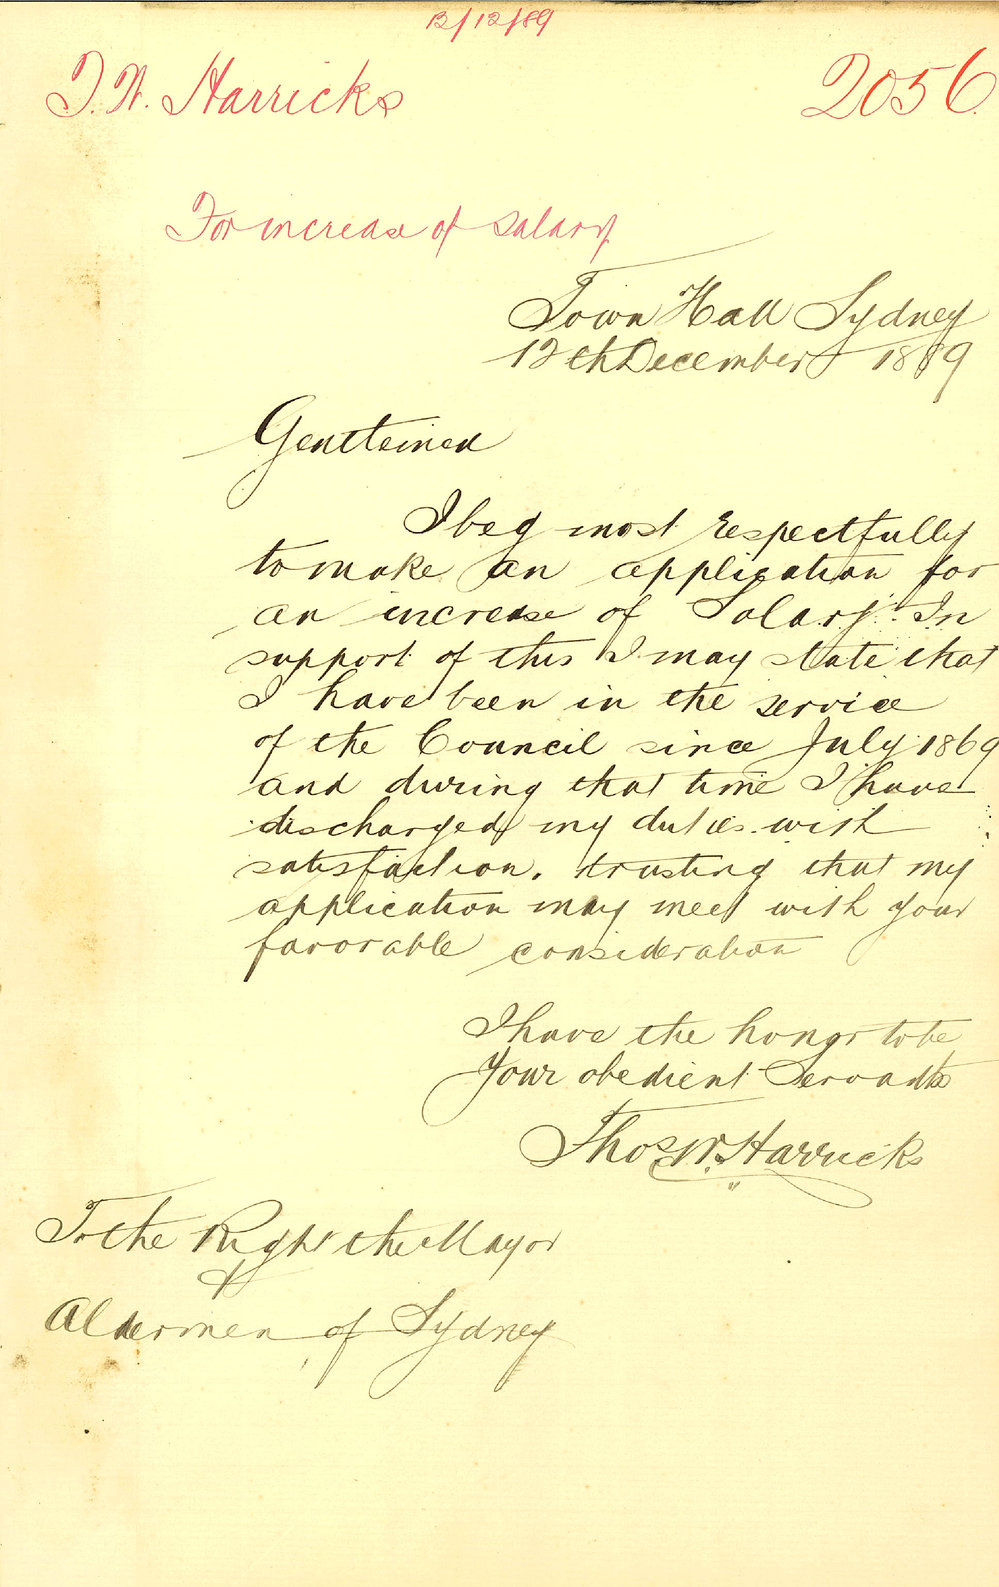 12/12/89
T. W. Harricks
2056
For increase of Salary
Town Hall Sydney
12th December 1889
Gentlemen
I beg most respectfully
to make an application for
an increase of Salary. In
support of this I may state that
I have been in the service
of the Council since July 1869
and during that time I have
discharged my duties with
satisfaction. trusting that my
application may meet with your
favorable consideration
I have the honor to be
Your obedient Servant
Thos W. Harricks
To the Right the Mayor
&
Aldermen of Sydney